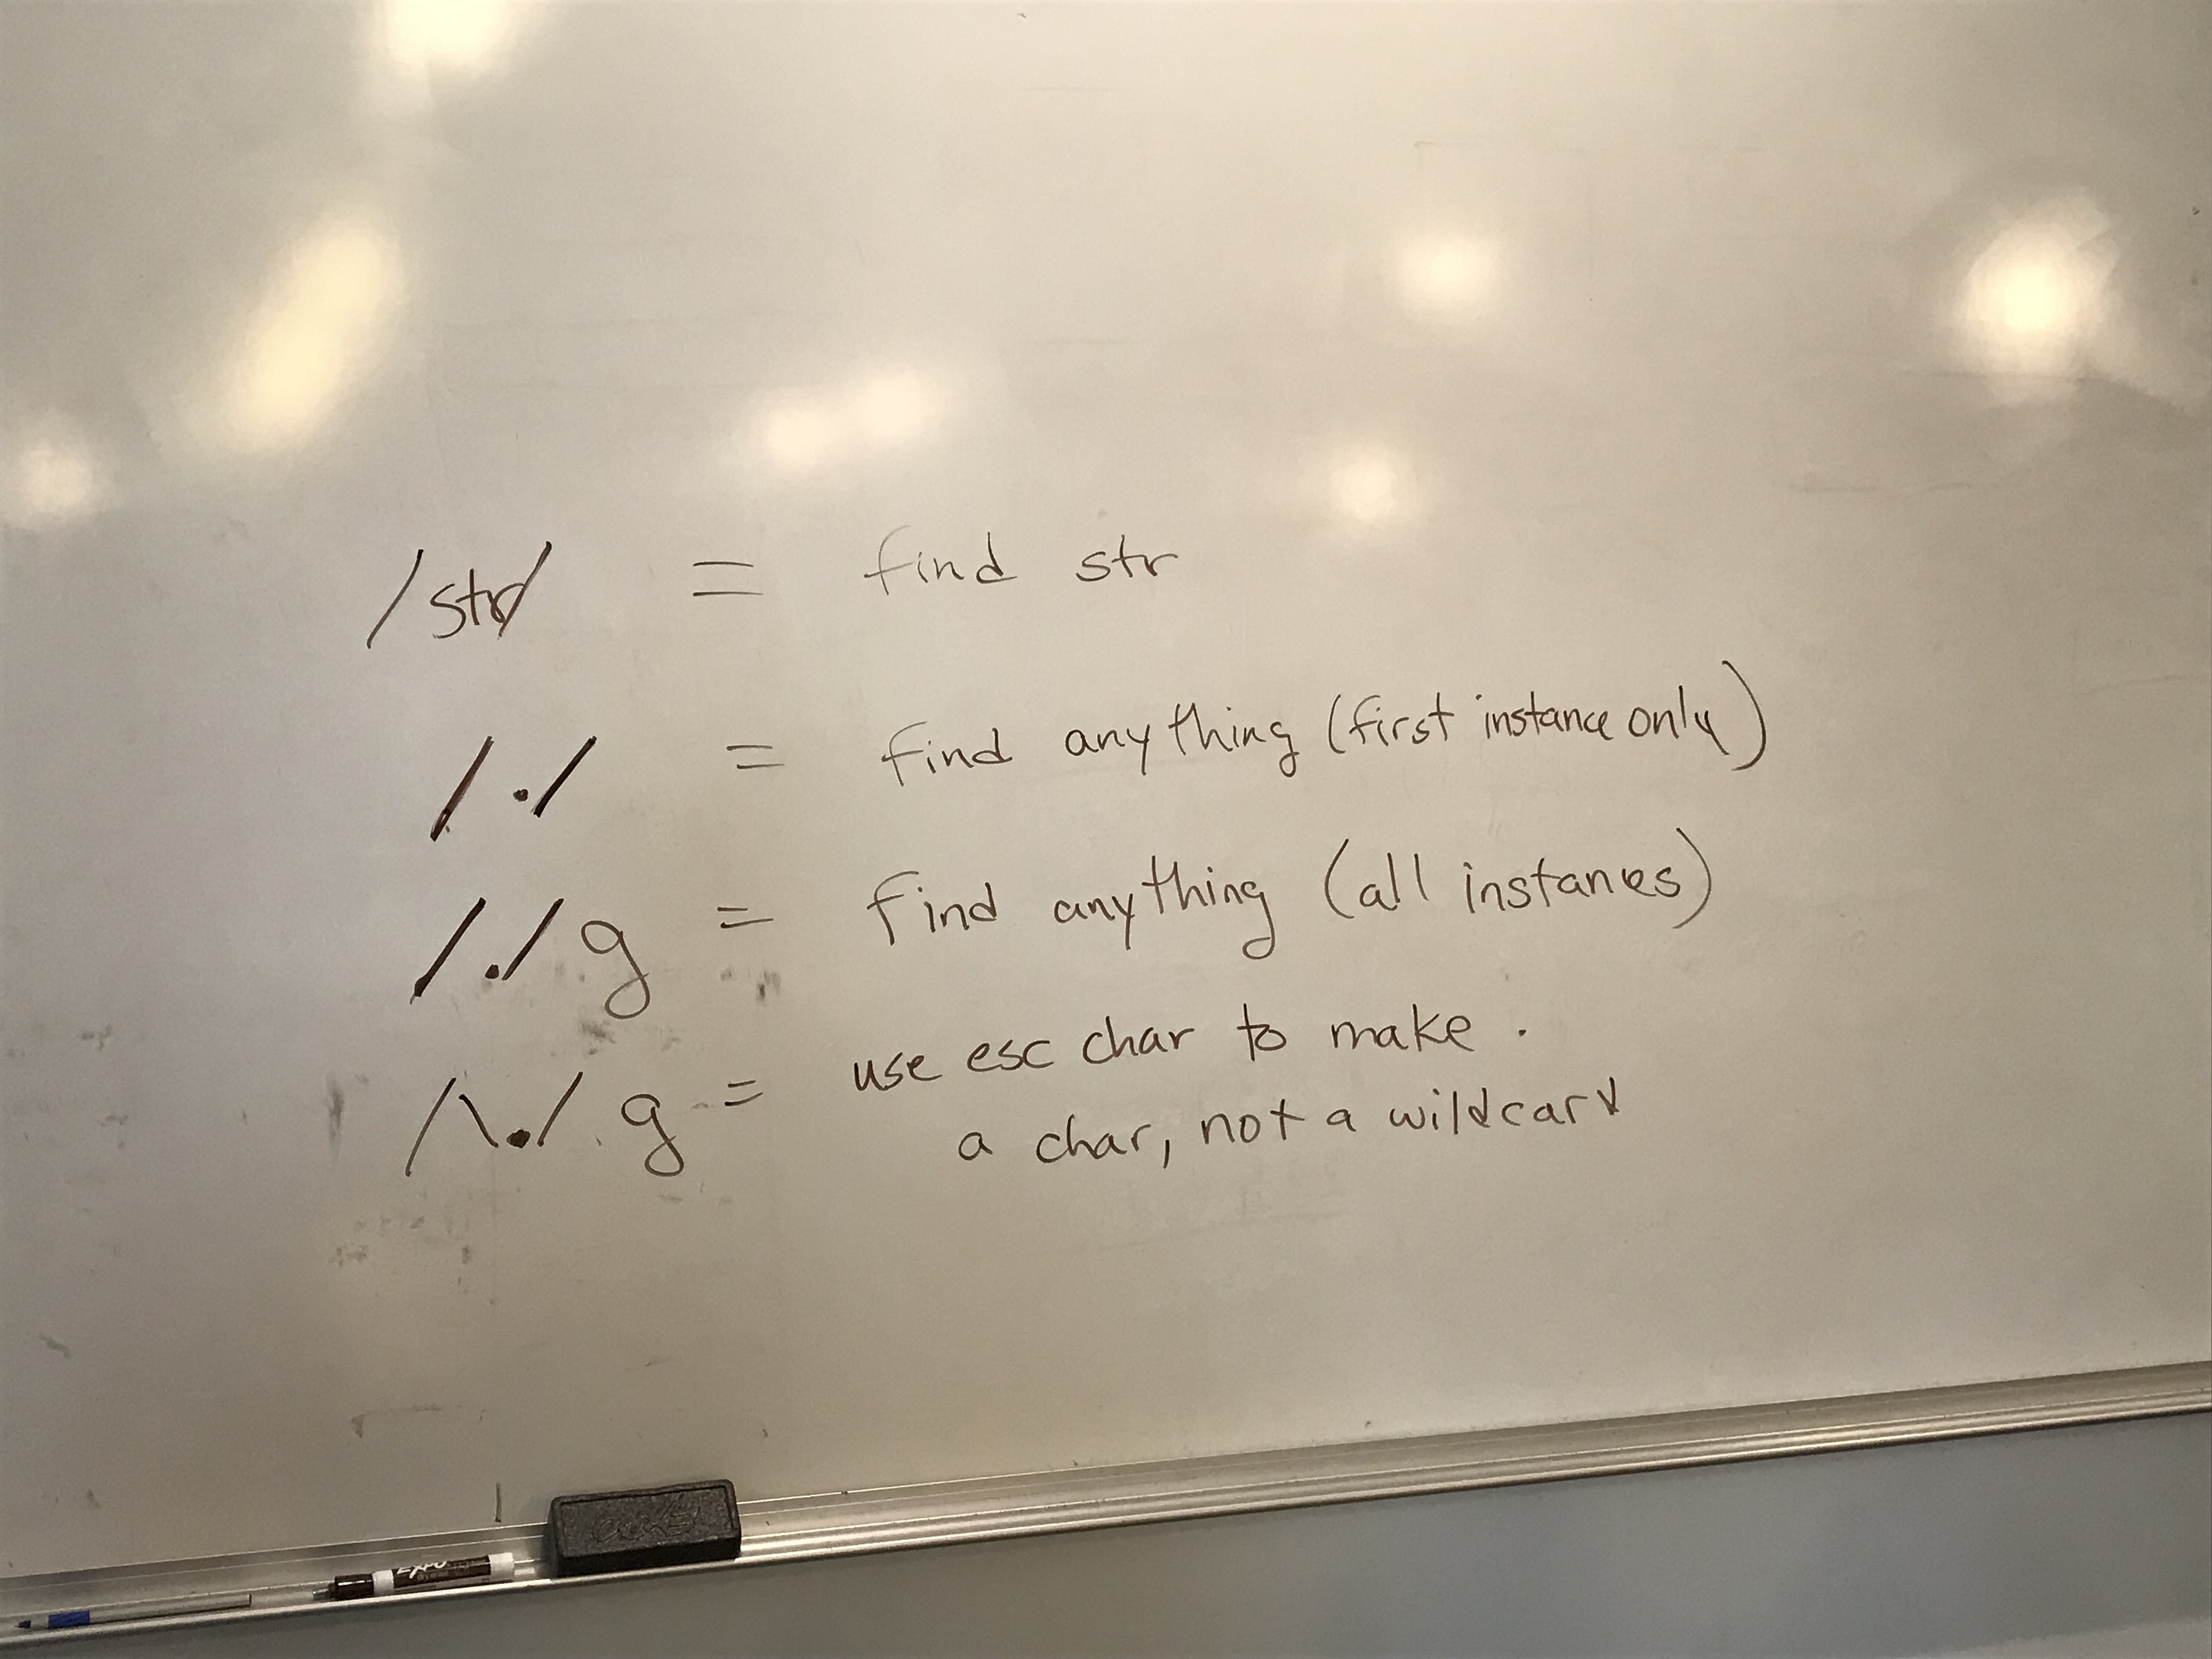 /str/ = find str
/./ = find anything (first instance only)
/./g = find anything (all instances)
/\./g = use esc char to make .
a char, not a wildcard
EXPO